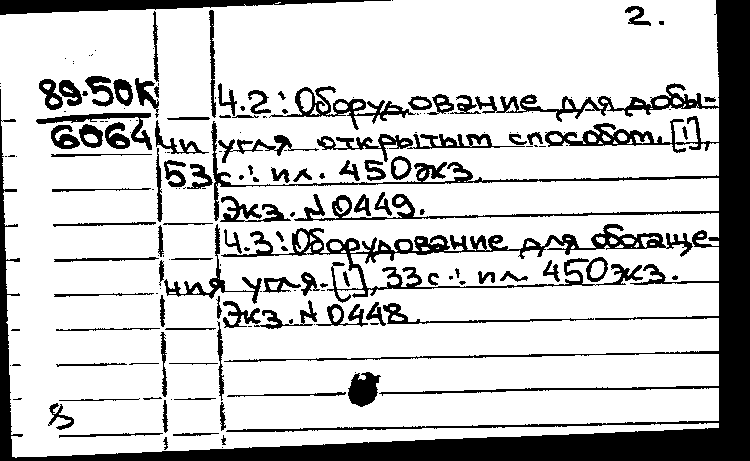 2.
89-50К
6064
4.2: Оборудование для добы-
чи угля открытым способом. [1],
53с.: ил. 450экз.
Экз. № 0449.
4.3: Оборудование для обогаще-
ния угля. [1], 33с.: ил. 450экз.
Экз. № 0448.
8